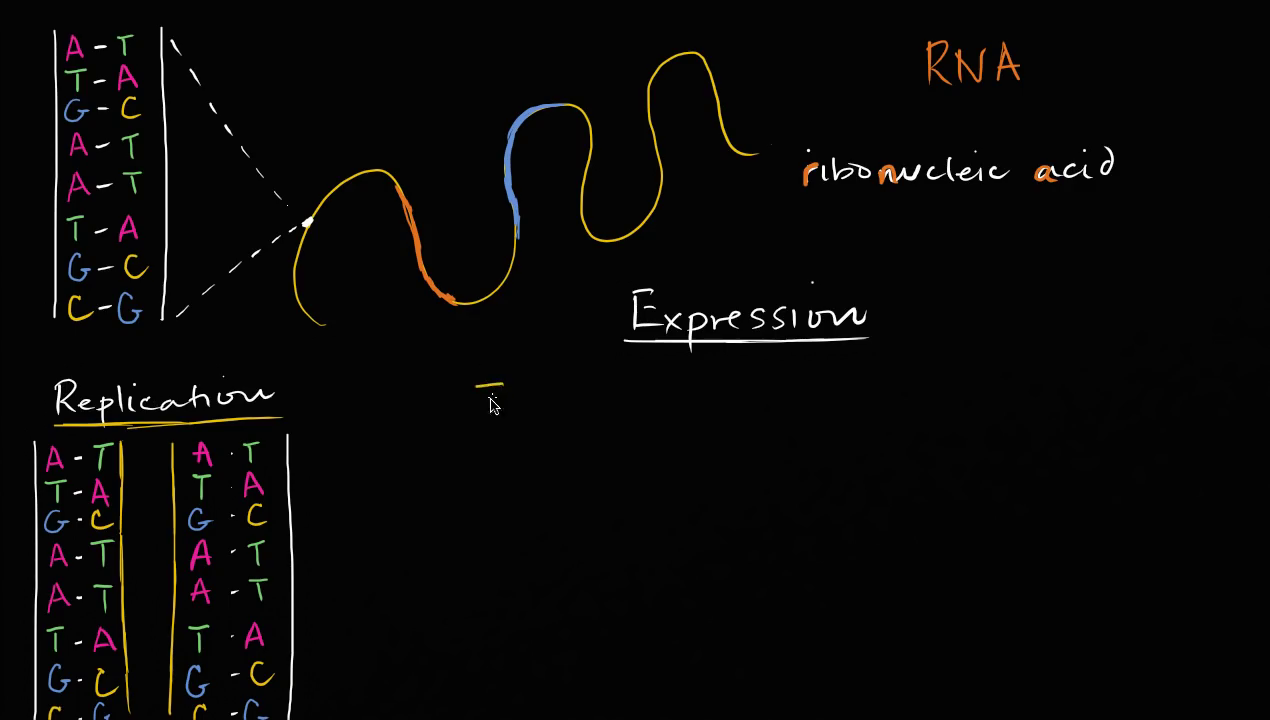 A - T
T - A
G - C
A - T
A - T
T - A
G - C
C - G
RNA
ribonucleic acid
Expression
Replication
A - T A · T
T - A T · A
G - C G · C
A - T A · T
A - T A · T
T - A T · A
G - C G - C
C - G C - G